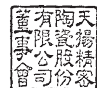 天揚精密
陶瓷股份
有限公司
董事會